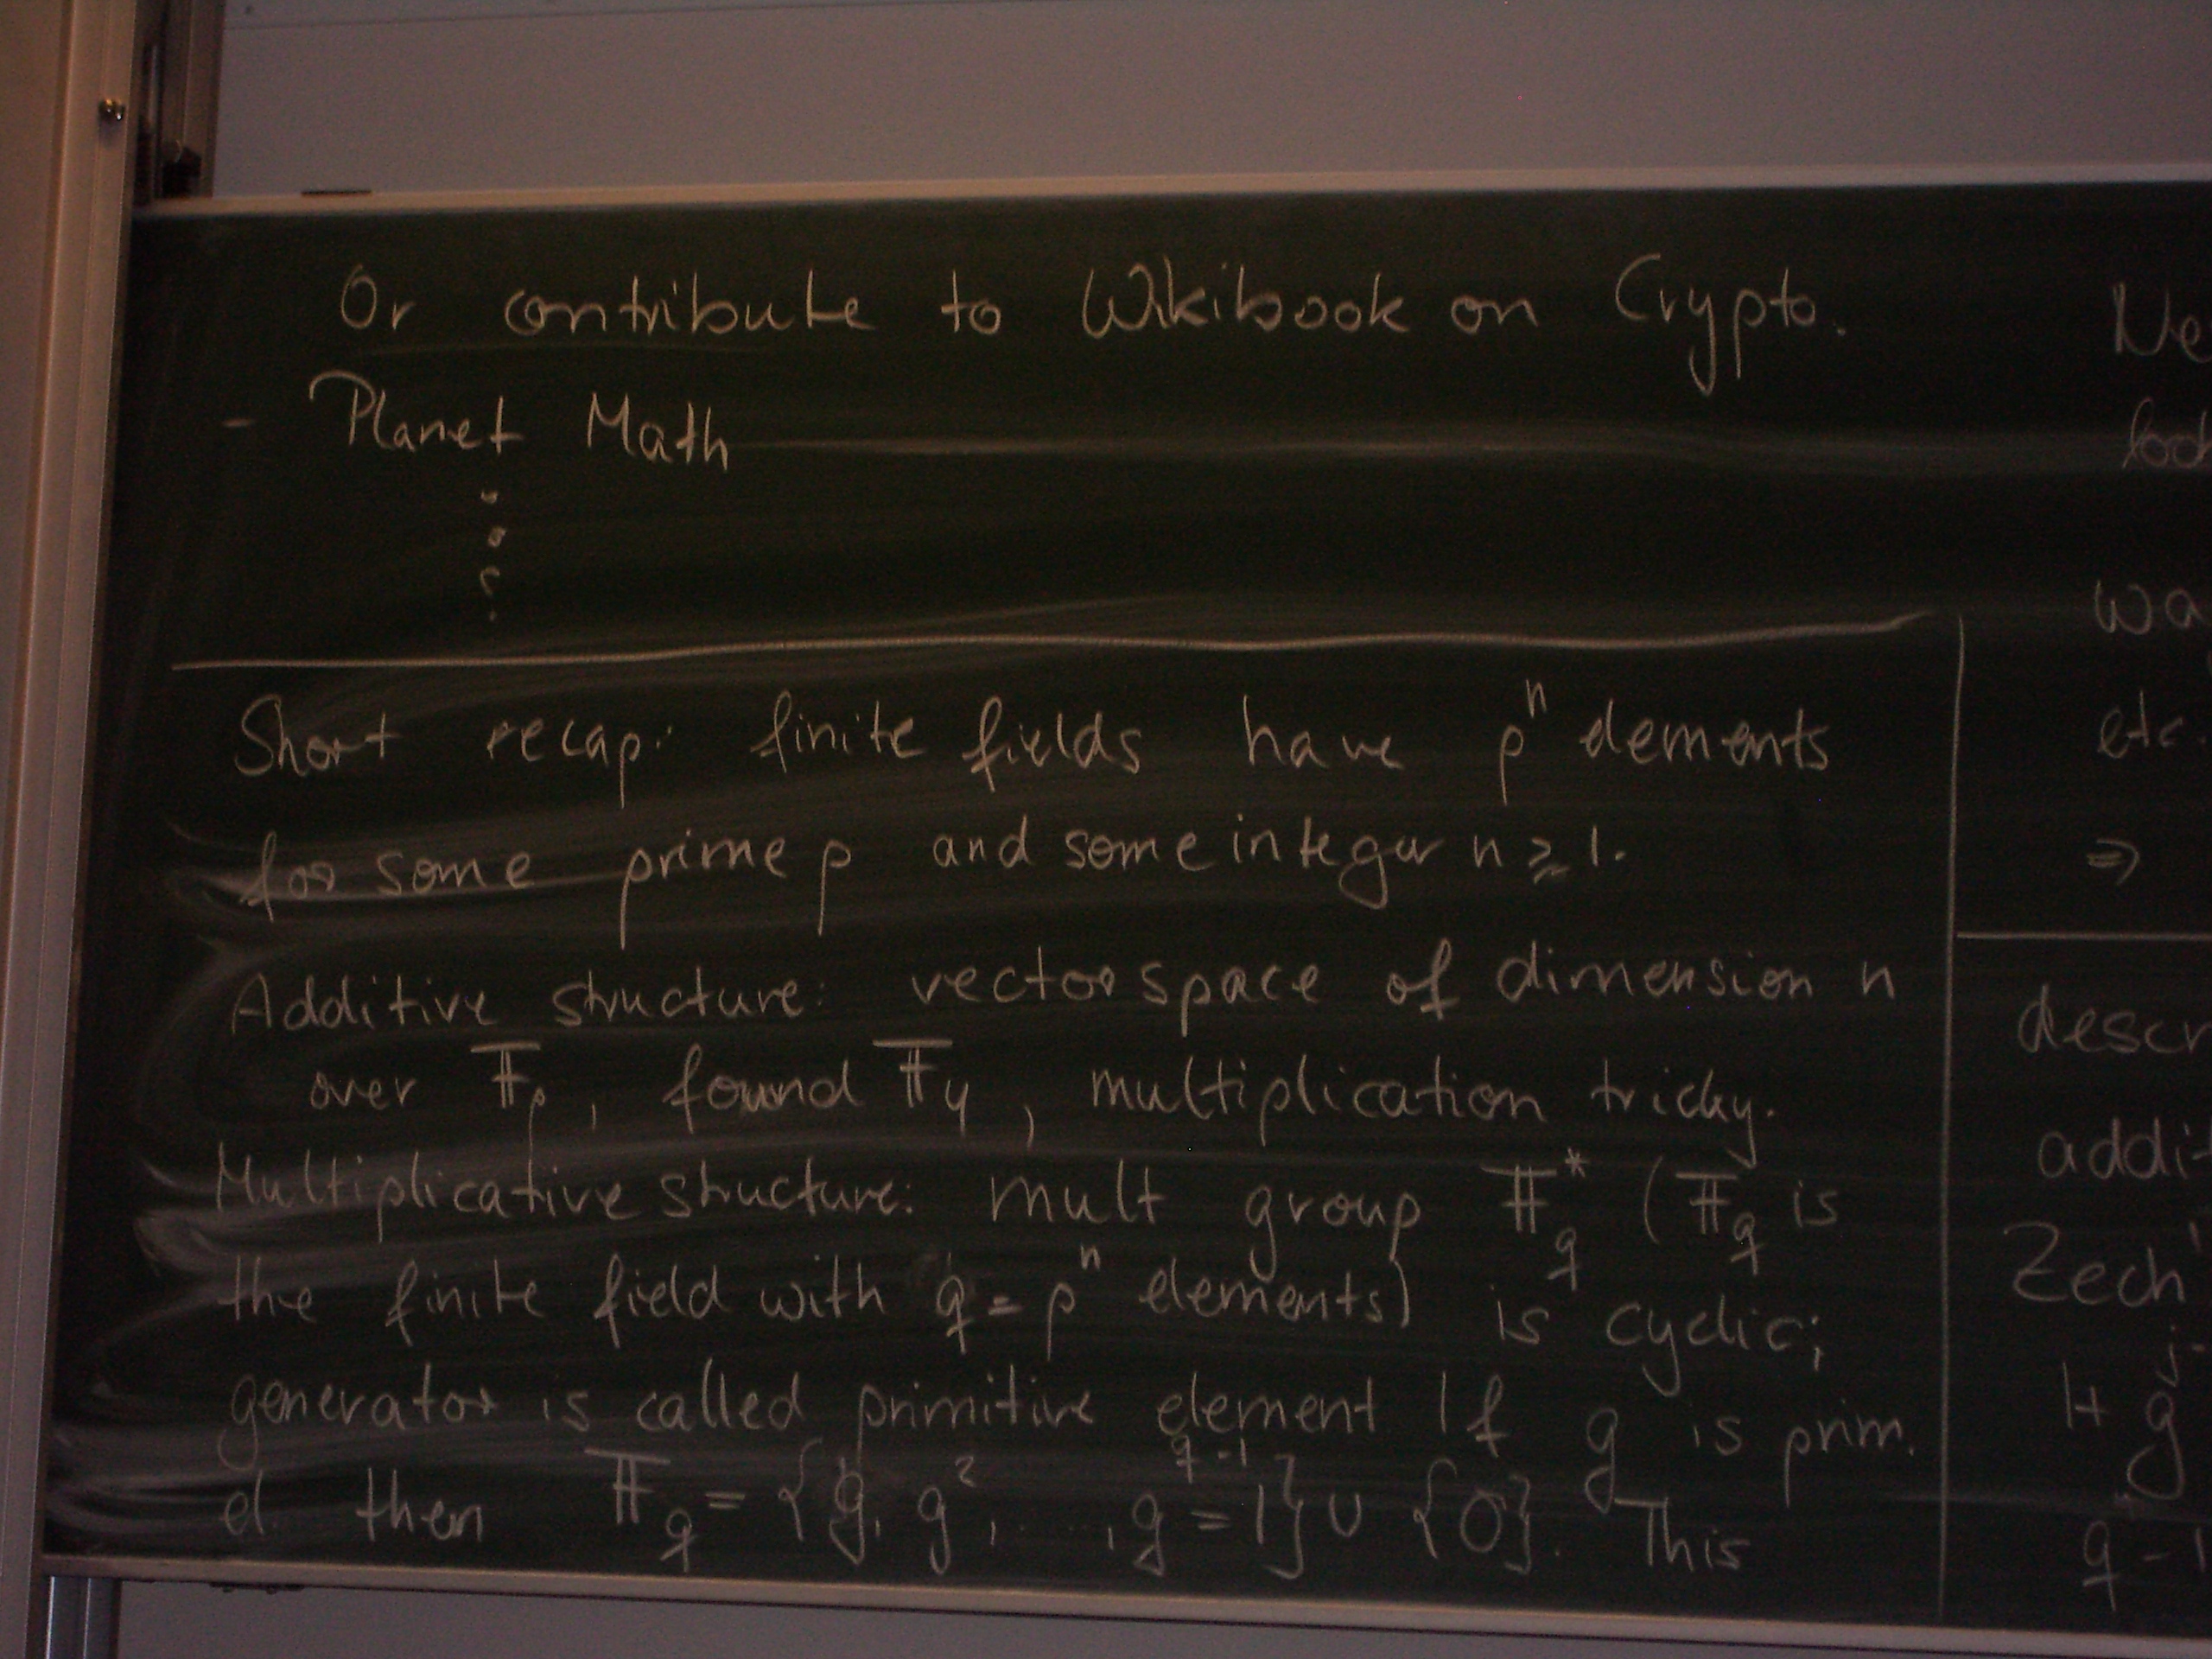 Or contribute to Wikibook on Crypto.
- Planet Math
Short recap: finite fields have pⁿ elements
for some prime p and some integer n ⩾ 1.
Additive structure: vectorspace of dimension n
over 𝔽ₚ, found 𝔽₄, multiplication tricky.
Multiplicative structure: mult group 𝔽_q^* (𝔽_q is
the finite field with q = pⁿ elements) is cyclic;
generator is called primitive element If g is prim.
el. then 𝔽_q = {g, g², ..., g^{q-1} = 1} ∪ {0}. This
Ne
wa
etc.
⇒
descr
addit
Zech'
j-
1+ g
q - 1